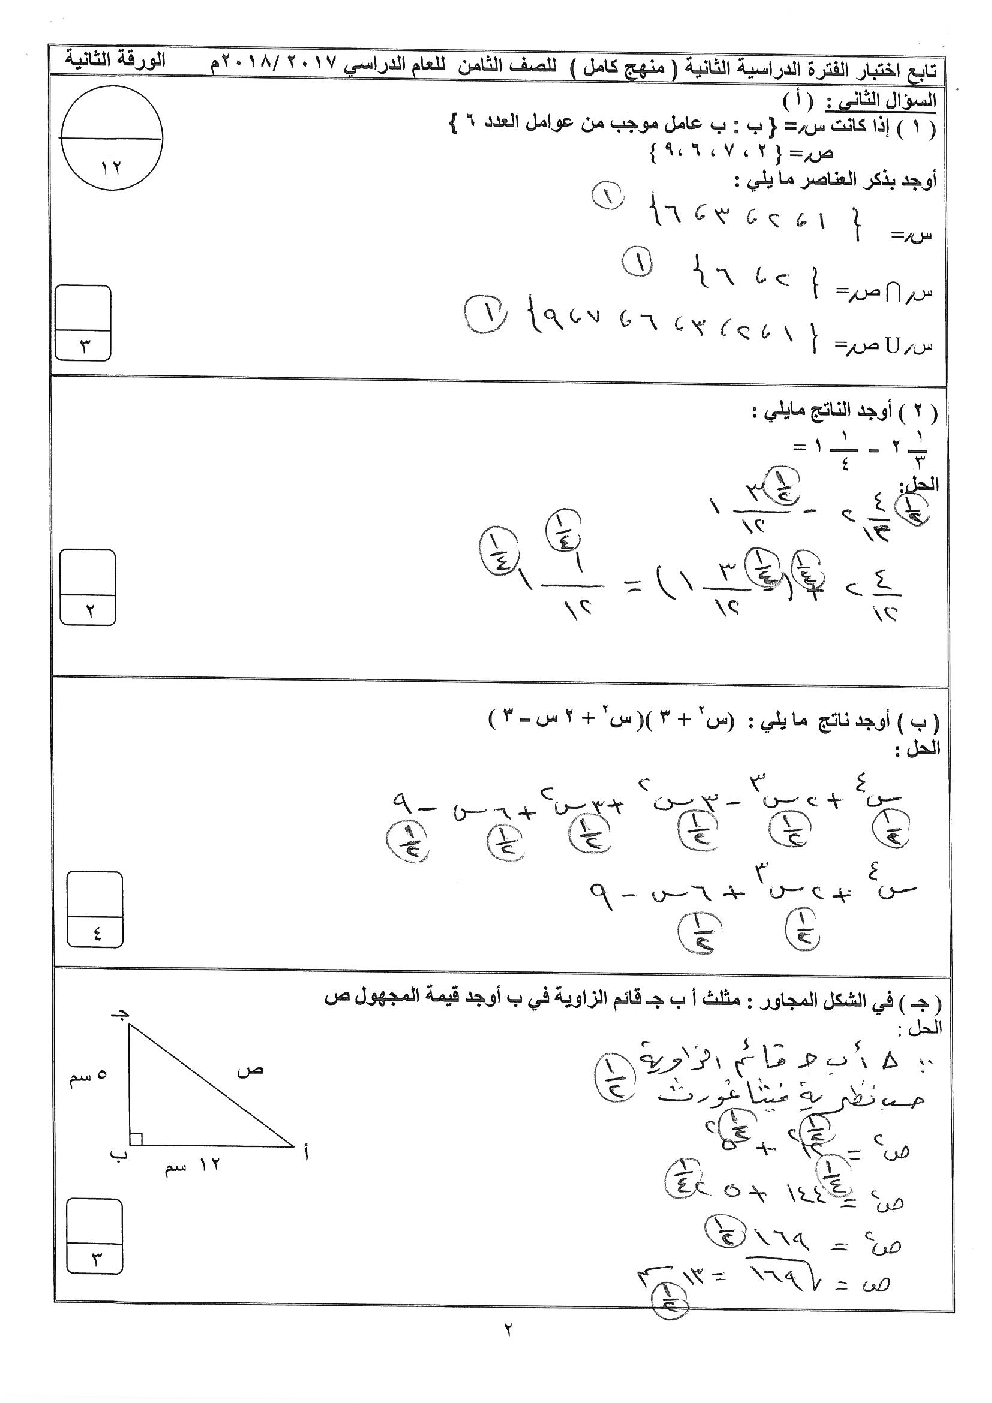 تابع اختبار الفترة الدراسية الثانية ( منهج كامل ) للصف الثامن للعام الدراسي ٢٠١٧ /٢٠١٨م الورقة الثانية
السؤال الثاني : ( أ )
١٢
( ١ ) إذا كانت س = { ب : ب عامل موجب من عوامل العدد ٦ }
ص = { ٢ ، ٧ ، ٦ ، ٩ }
أوجد بذكر العناصر ما يلي :
س = { ١ ، ٢ ، ٣ ، ٦ } ١
س ∩ ص = { ٢ ، ٦ } ١
س U ص = { ١ ، ٢ ، ٣ ، ٦ ، ٧ ، ٩ } ١
٣
( ٢ ) أوجد الناتج مايلي :
٢ ١/٣ – ١ ١/٤ =
الحل:
٢ ٤/١٢ - ١ ٣/١٢
٢ ٤/١٢ + ( - ١ ٣/١٢ ) = ١ ١/١٢
٢
( ب ) أوجد ناتج ما يلي : (س٢ + ٣ )( س٢ + ٢ س – ٣ )
الحل :
س٤ + ٢س٣ - ٣س٢ + ٣س٢ + ٦س - ٩
س٤ + ٢س٣ + ٦س - ٩
٤
( جـ ) في الشكل المجاور : مثلث أ ب جـ قائم الزاوية في ب أوجد قيمة المجهول ص
الحل :
جـ
ص
٥ سم
ب
١٢ سم
أ
∵ ∆ أ ب ج قائم الزاوية
حسب نظرية فيثاغورث
ص٢ = ١٢٢ + ٥٢
ص٢ = ١٤٤ + ٢٥
ص٢ = ١٦٩
ص = √١٦٩ = ١٣ سم
٣
٢